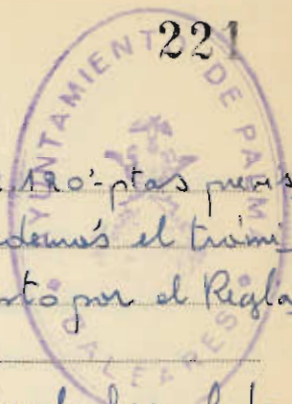 221
AYUNTAMIENTO DE PALMA
BALEARES
120'-ptas previs
demás el trámi
sto por el Regla